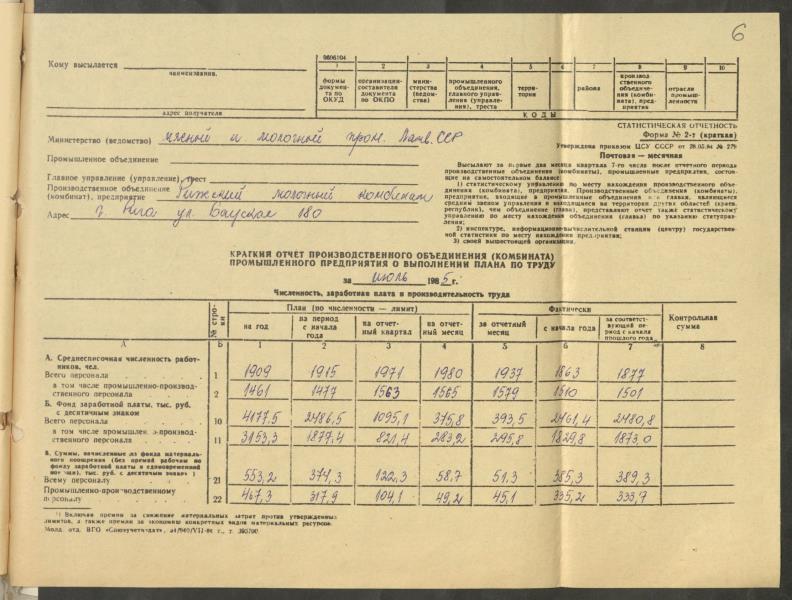 6
Кому высылается
наименование,
адрес получателя
9606104
1 2 3 4 5 6 7 8 9 10
формы документа по ОКУД
организации-составителя документа по ОКПО
министерства (ведомства)
промышленного объединения, главного управления (управления), треста
территории
района
производственного объединения (комбината), предприятия
отрасли промышленности
КОДЫ
СТАТИСТИЧЕСКАЯ ОТЧЕТНОСТЬ
Форма № 2-т (краткая)
Утверждена приказом ЦСУ СССР от 28.05.84 № 279
Почтовая — месячная
Министерство (ведомство) мясной и молочной пром. Латв. ССР
Промышленное объединение
Главное управление (управление), трест
Производственное объединение
(комбинат), предприятие Рижский молочный комбинат
Адрес г. Рига ул. Баускас 180
Высылают за первые два месяца квартала 7-го числа после отчетного периода
производственные объединения (комбинаты), промышленные предприятия, состоящие на самостоятельном балансе:
1) статистическому управлению по месту нахождения производственного объединения (комбината), предприятия. Производственные объединения (комбинаты),
предприятия, входящие в промышленные объединения или главки, являющиеся
средним звеном управления и находящиеся на территории других областей (краев,
республик), чем объединение (главк), представляют отчет также статистическому
управлению по месту нахождения объединения (главка) по указанию статуправления;
2) инспектуре, информационно-вычислительной станции (центру) государственной статистики по месту нахождения предприятия;
3) своей вышестоящей организации.
КРАТКИЙ ОТЧЕТ ПРОИЗВОДСТВЕННОГО ОБЪЕДИНЕНИЯ (КОМБИНАТА)
ПРОМЫШЛЕННОГО ПРЕДПРИЯТИЯ О ВЫПОЛНЕНИИ ПЛАНА ПО ТРУДУ
за июль 1985 г.
Численность, заработная плата и производительность труда
№ строки
План (по численности — лимит)
Фактически
Контрольная сумма
на год
на период с начала года
на отчетный квартал
на отчетный месяц
за отчетный месяц
с начала года
за соответствующий период с начала прошлого года
А Б 1 2 3 4 5 6 7 8
А. Среднесписочная численность работников, чел.
Всего персонала 1 1909 1915 1971 1980 1937 1863 1877
в том числе промышленно-производственного персонала 2 1461 1477 1563 1565 1579 1510 1501
Б. Фонд заработной платы, тыс. руб. с десятичным знаком
Всего персонала 10 4177,5 2486,5 1095,1 375,8 393,5 2461,4 2480,8
в том числе промышленно-производственного персонала 11 3153,3 1877,4 821,4 283,2 295,8 1829,8 1873,0
В. Суммы, начисленные из фонда материального поощрения (без премий рабочим по фонду заработной платы и единовременной помощи), тыс. руб. с десятичным знаком
Всему персоналу 21 553,2 374,3 122,3 58,7 51,3 385,3 389,3
Промышленно-производственному персоналу 22 467,3 317,9 104,1 49,2 45,1 335,2 333,7
¹) Включая премии за снижение материальных затрат против утвержденных
лимитов, а также премии за экономию конкретных видов материальных ресурсов.
Молд. отд. ВГО «Союзучетиздат»,